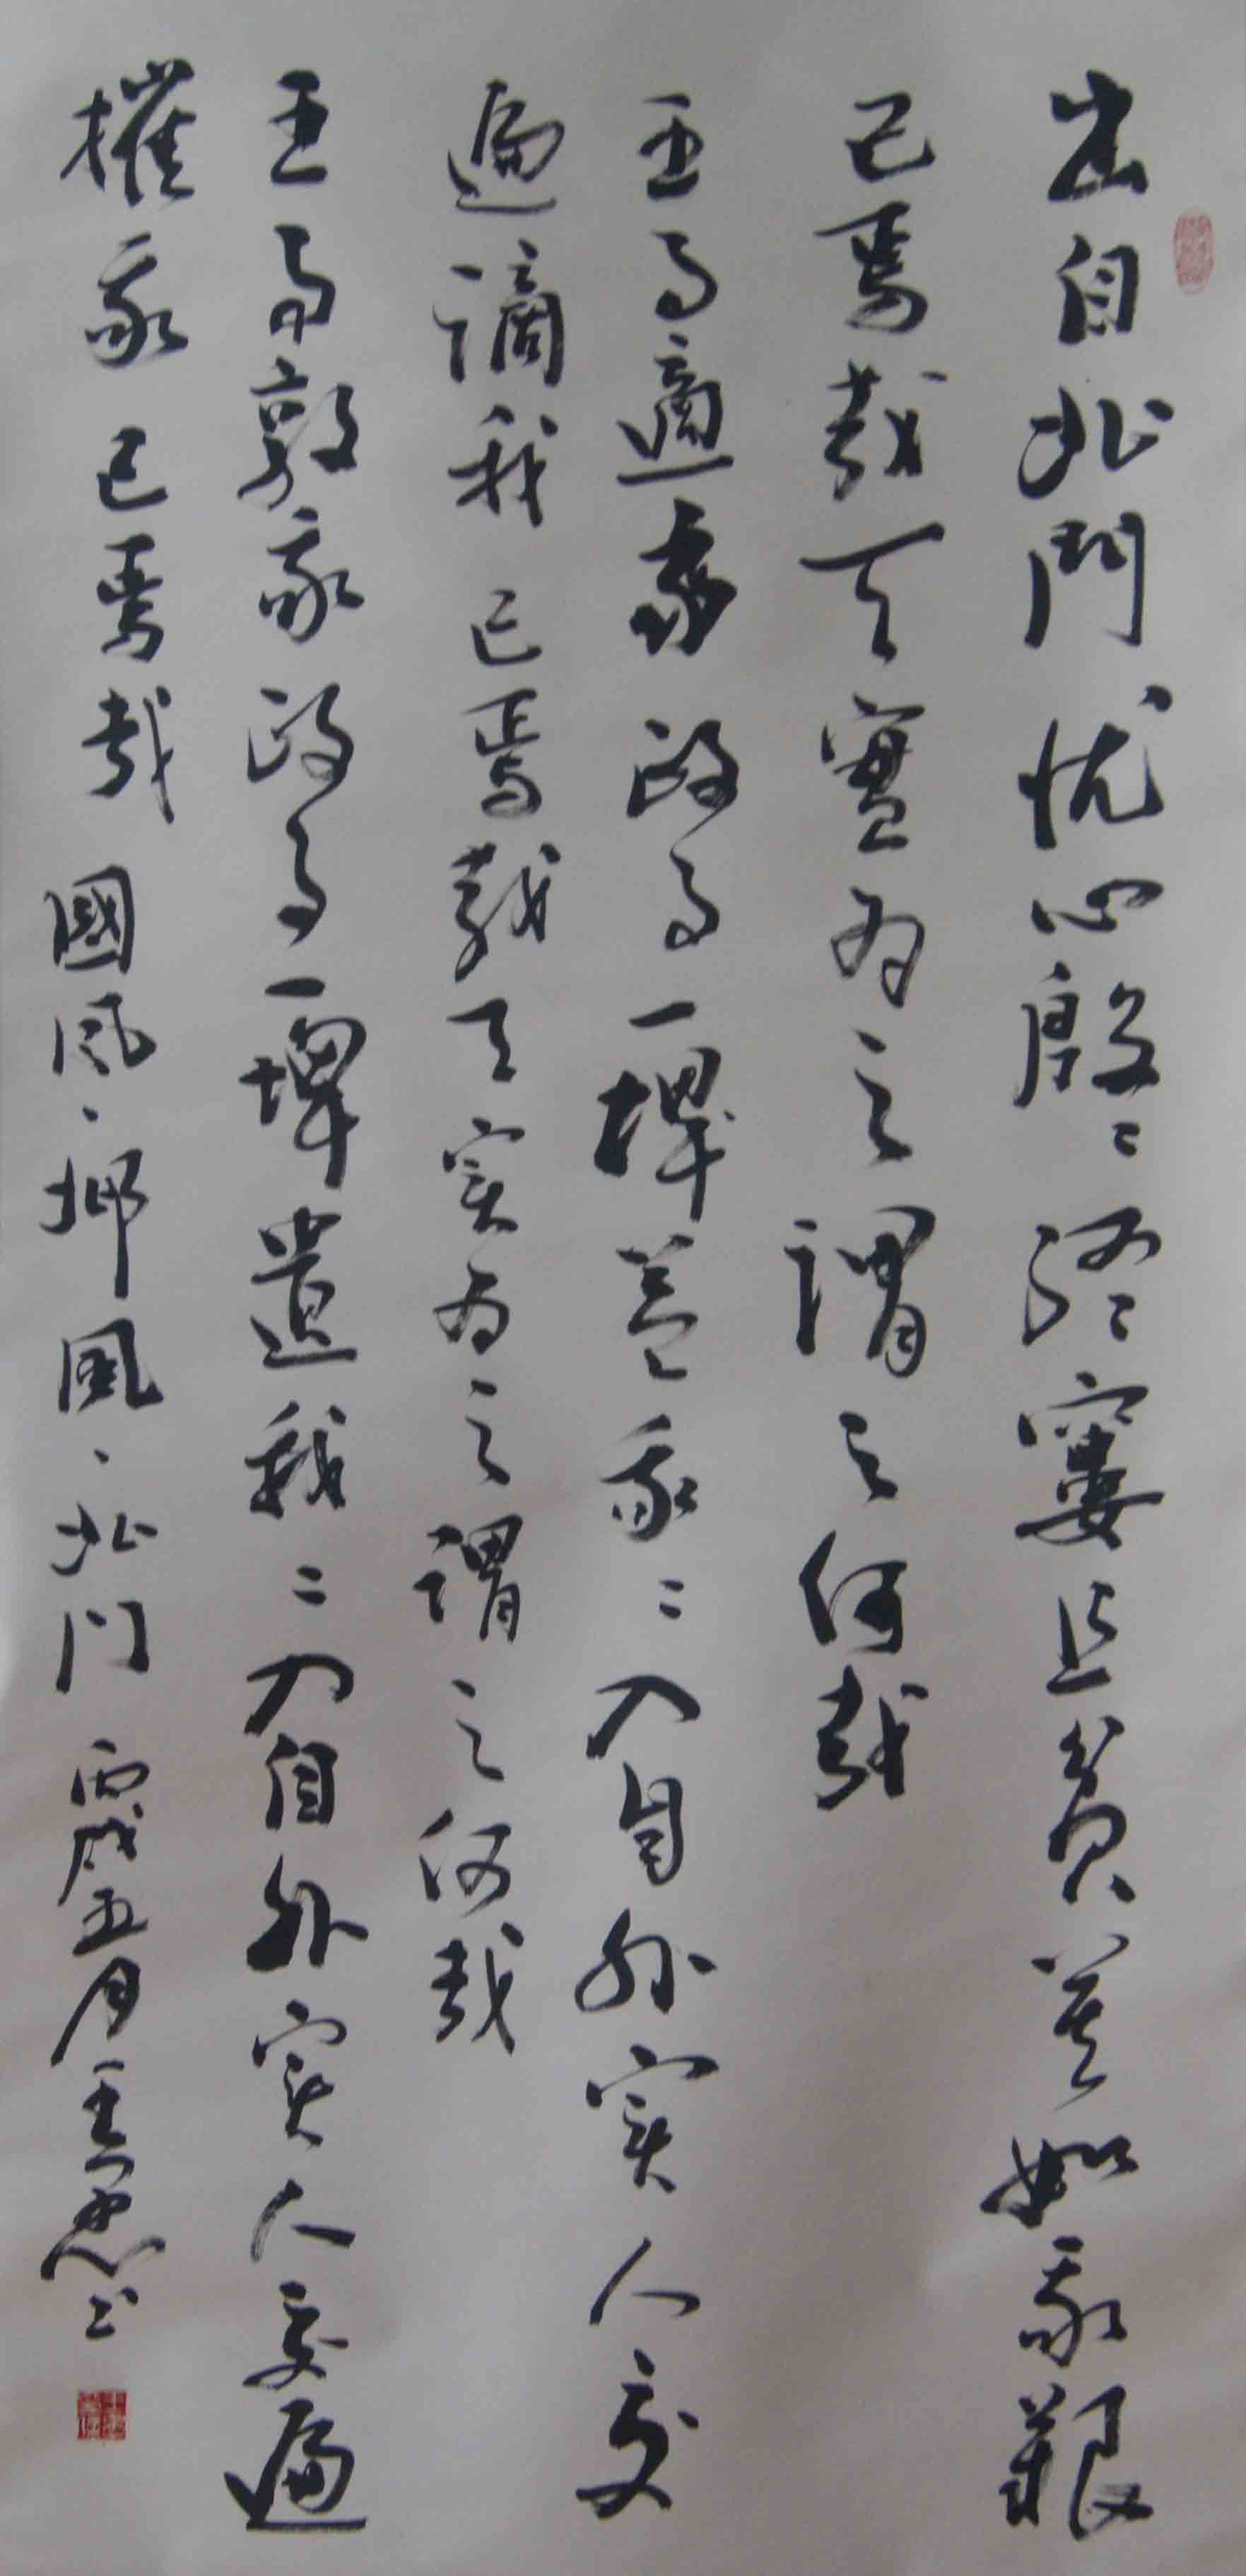 出自北門忧心殷〻終窶且貧莫知我艱
已焉哉天實为之謂之何哉
王事適我政事一埤益我〻入自外室人交
遍謫我已焉哉天实为之謂之何哉
王事敦我政事一埤遺我〻入自外室人交遍
摧我已焉哉國风、邶風、北门丙戌五月王书